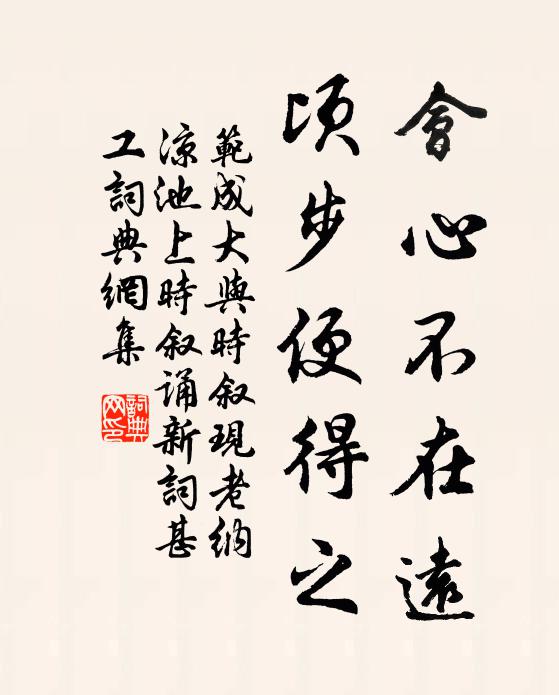 會心不在遠
頃步便得之
範成大與時叙現老納
涼池上時叙誦新詞甚
工詞典網集
詞典
网印